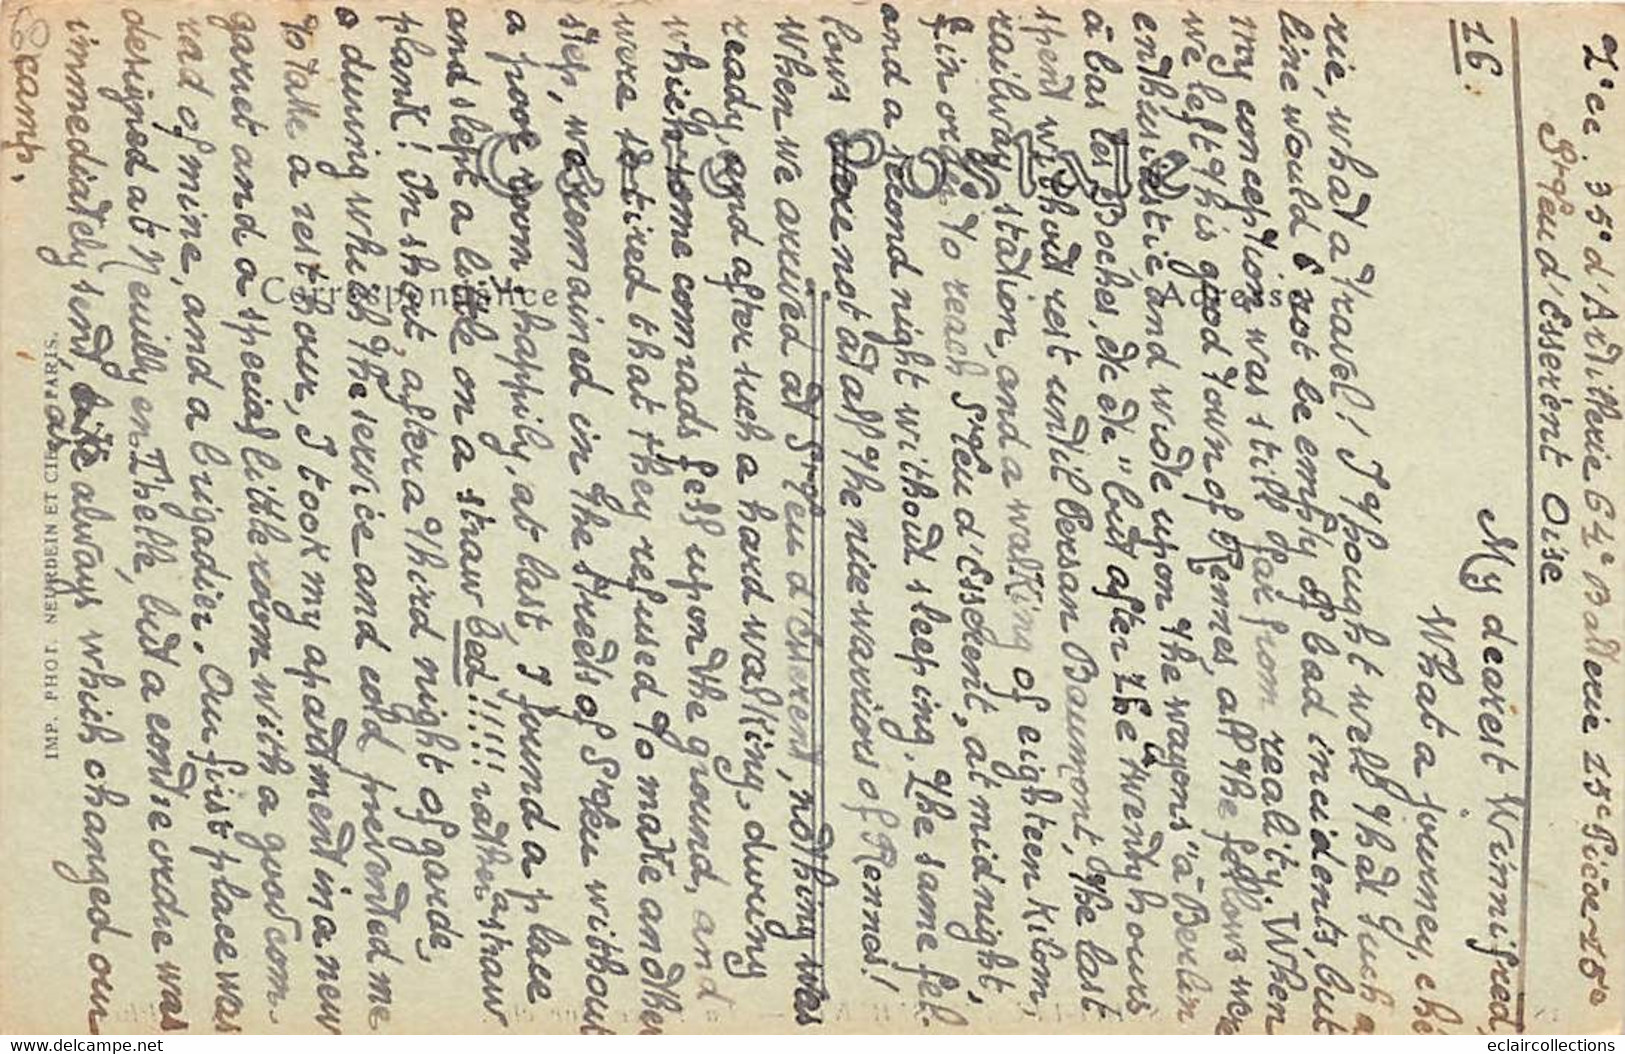 2e cc. 35e d'Artillerie 64e Batterie 15e Pièce 15e
St Leu d'Esserent Oise
16.
My dearest Winnifred,
What a journey, ché
rie, what a travel! I thought well that such a
line would not be empty of bad incidents, but
my conception was still far from reality. When
we left this good town of Rennes, all the fellows were
enthusiastic and wrote upon the wagons "à Berlin
à bas les Boches, etc etc" but after the twenty hours
spent without rest until Persan Baumont, the last
railway station, and a walking of eighteen kilom,
in order to reach St Leu d'Esserent, at midnight,
and a second night without sleeping, the same fel-
lows were not at all the nice warriors of Rennes!
When we arrived at St Leu d'Esserent, nothing was
ready, and after such a hard walking, during
which some comrads fell upon the ground, and
were so tired that they refused to make another
step, we remained in the streets of St Leu without
a poor room; happily, at last, I found a place
and slept a little on a straw bed!!!!! rather a straw
plank! In short, after a third night of garde,
during which the service and cold prevented me
to take a rest hour, I took my apartment in a new
garret and a special little room with a good com-
rad of mine, and a brigadier. Our first place was
designed at Neuilly en Thelle, but a contre ordre was
immediately sent, as always which changed our
camp.
CARTE POSTALE
Correspondance
Adresse
IMP. PHOT. NEURDEIN ET CIE, PARIS.
eclaircollections.com